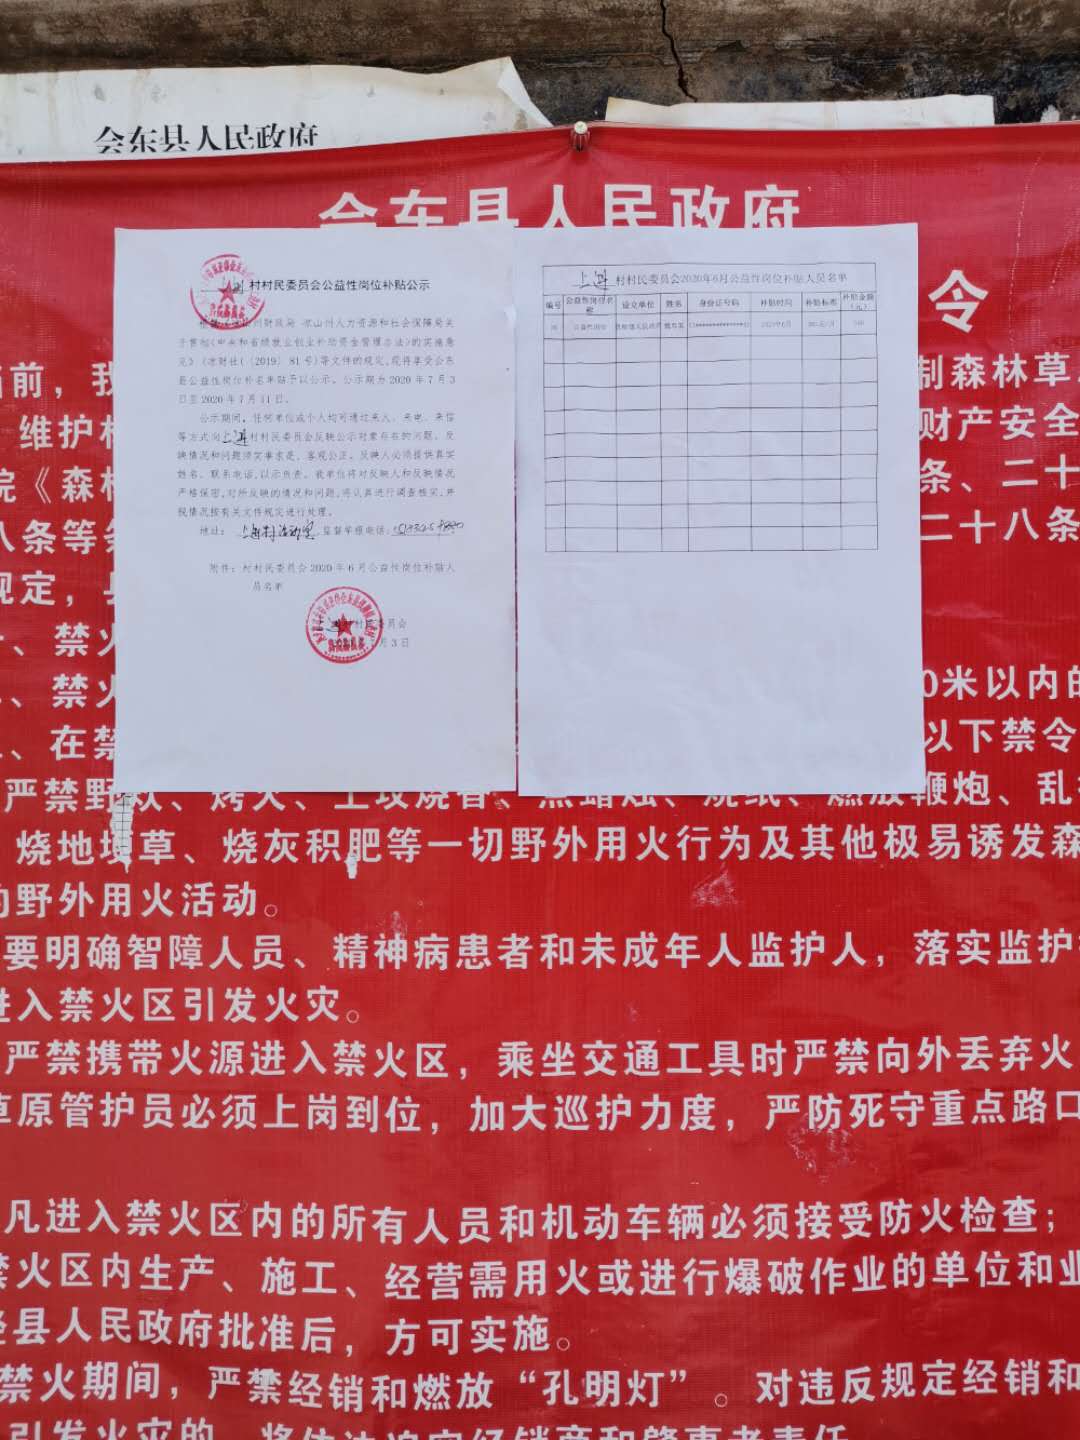 会东县人民政府
会东县人民政府
令
村村民委员会公益性岗位补贴公示
州财政局 凉山州人力资源和社会保障局关
于贯彻《中央和省级就业创业补助资金管理办法》的实施意
见》(凉财社(〔2019〕81号)等文件的规定,现将享受会东
县公益性岗位补名单贴予以公示。公示期为2020年7月3
日至2020年7月11日。
公示期间,任何单位或个人均可通过来人、来电、来信
等方式向 村村民委员会反映公示对象存在的问题。反
映情况和问题须实事求是、客观公正。反映人必须提供真实
姓名、联系电话,以示负责。我单位将对反映人和反映情况
严格保密,对所反映的情况和问题,将认真进行调查核实,并
视情况按有关文件规定进行处理。
地址: 村活动室 监督举报电话:
附件:村村民委员会2020年6月公益性岗位补贴人
员名单
村民委员会
月3日
村村民委员会2020年6月公益性岗位补贴人员名单
编号 公益性岗位名称 设立单位 姓名 身份证号码 补贴时间 补贴标准 补贴金额(元)
2020年6月
当前,我
制森林草
维护
财产安全
院《森林
条、二十
八条等条
二十八条
规定,县
、禁火
、禁火
0米以内的
、在禁
以下禁令
严禁野炊、烤火、上坟烧香、点蜡烛、烧纸、燃放鞭炮、乱
烧地埂草、烧灰积肥等一切野外用火行为及其他极易诱发森
的野外用火活动。
要明确智障人员、精神病患者和未成年人监护人,落实监护
进入禁火区引发火灾。
严禁携带火源进入禁火区,乘坐交通工具时严禁向外丢弃火
草原管护员必须上岗到位,加大巡护力度,严防死守重点路口
凡进入禁火区内的所有人员和机动车辆必须接受防火检查;
禁火区内生产、施工、经营需用火或进行爆破作业的单位和业
经县人民政府批准后,方可实施。
禁火期间,严禁经销和燃放“孔明灯”。对违反规定经销和
引发火灾的,将依法追究经销商和肇事者责任